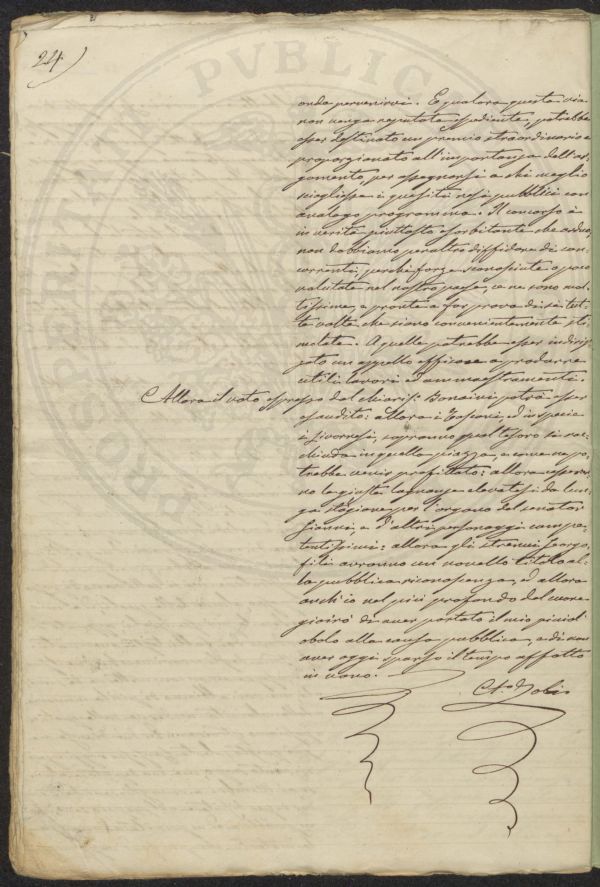 24)
onde pervenirvi. E qualora questa via
non venga reputata espediente, potrebbe
esser destinato un premio straordinario e
proporzionato all'importanza dell'ar-
gomento, per assegnarsi a chi meglio
sciogliesse i quesiti resi pubblici con
analogo programma. Il concorso è
in verità piuttosto esorbitante che arduo,
non dobbiamo peraltro diffidare di con-
correnti, perché forze sconosciute o poco
valutate nel nostro paese, ve ne sono mol-
tissime, e pronte a far prova di se tut-
te volte che siano convenientemente sti-
molate. A quelle potrebbe esser indiriz-
zato un appello efficace a produrre
utili lavori ed ammaestramenti.
Allora il voto espresso dal chiaris: Bonaini potrà esser
esaudito: allora i Toscani, ed in specie
i Livornesi, sapranno qual tesoro si rac-
chiuda in quella piazza, e come ne po-
trebbe venir profittato: allora cesseran-
no le giuste lagnanze elevatesi da lun-
ga stagione per l'organo del senator
Gianni, e d'altri personaggi compe-
tentissimi: allora gli strenui Georgo-
fili avranno un novello titolo al-
la pubblica riconoscenza, ed allora
anch'io nel più profondo del cuore
gioirò di aver portato il mio piccol
obolo alla causa pubblica, e di non
aver oggi sparso il tempo affatto
in vano.
Zobi
PUBLICA